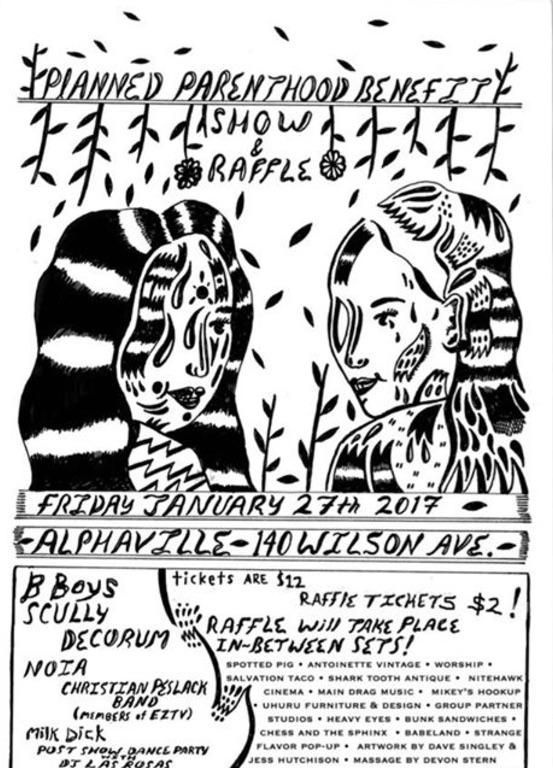 PLANNED PARENTHOOD BENEFIT
SHOW
&
RAFFLE
FRIDAY JANUARY 27th 2017
-ALPHAVILLE-140 WILSON AVE.-
B BOYS
SCULLY
DECORUM
NOIA
CHRISTIAN PESLACK
BAND
(MEMBERS of EZTV)
Milk Dick
POST SHOW DANCE PARTY
WITH
DJ LAS ROSAS
tickets ARE $12
RAFFLE TICKETS $2!
RAFFLE WILL TAKE PLACE
IN-BETWEEN SETS!
SPOTTED PIG • ANTOINETTE VINTAGE • WORSHIP •
SALVATION TACO • SHARK TOOTH ANTIQUE • NITEHAWK
CINEMA • MAIN DRAG MUSIC • MIKEY'S HOOKUP
• UHURU FURNITURE & DESIGN • GROUP PARTNER
STUDIOS • HEAVY EYES • BUNK SANDWICHES •
CHESS AND THE SPHINX • BABELAND • STRANGE
FLAVOR POP-UP • ARTWORK BY DAVE SINGLEY &
JESS HUTCHISON • MASSAGE BY DEVON STERN